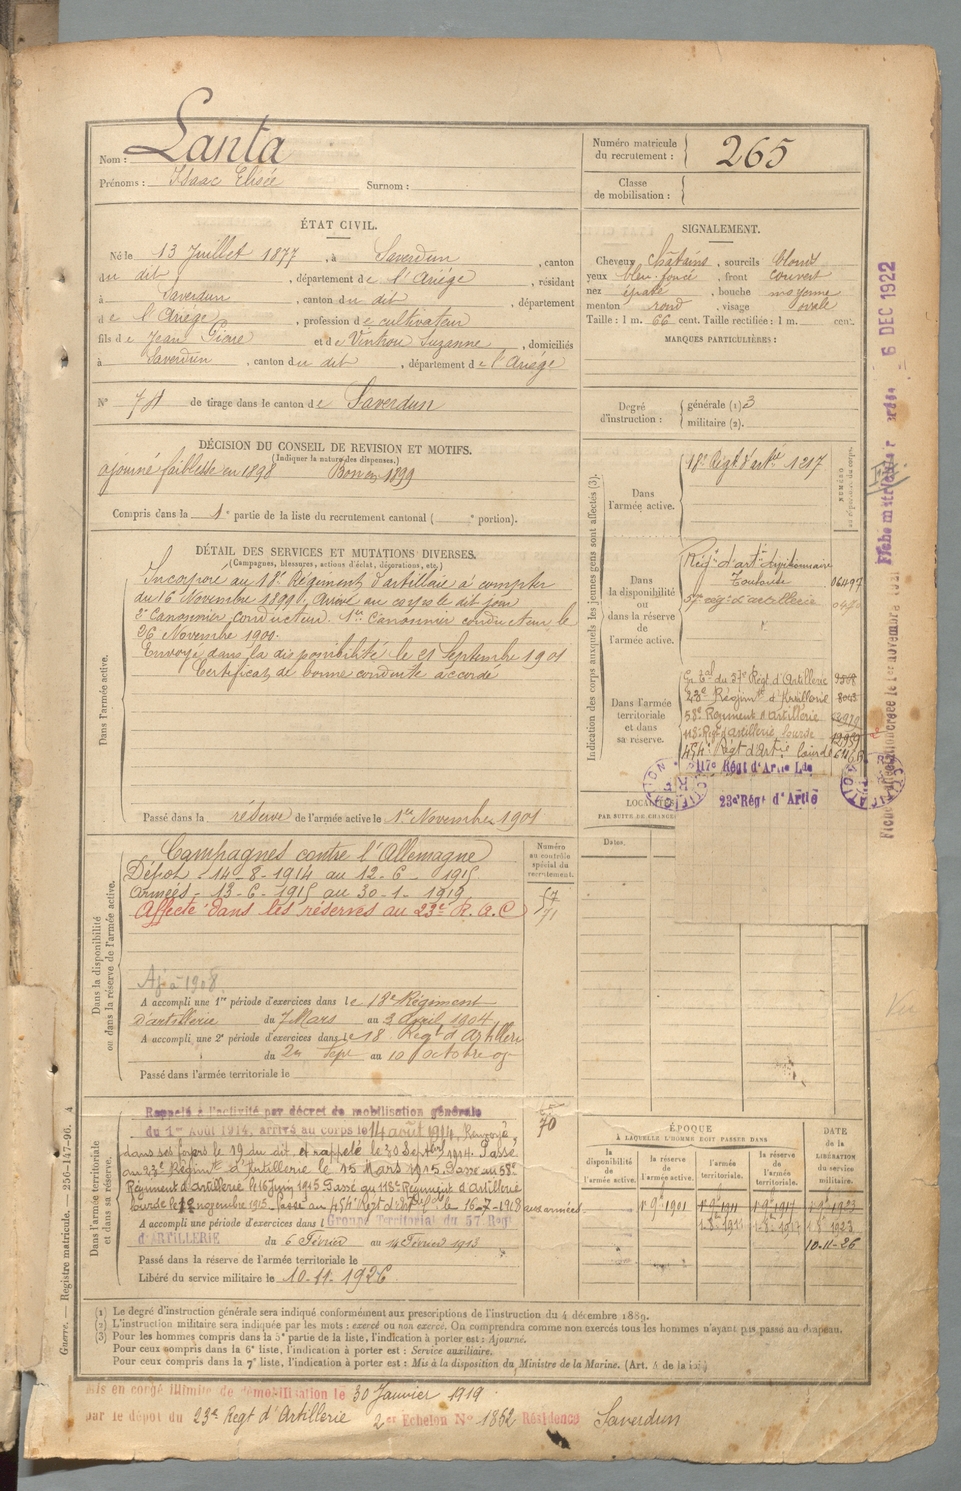 Nom : Lanta
Prénoms : Isaac Elisée Surnom :
Numéro matricule du recrutement : 265
Classe de mobilisation :
ÉTAT CIVIL.
Né le 13 Juillet 1877, à Saverdun, canton
du dit, département de l'Ariége, résidant
à Saverdun, canton du dit, département
de l'Ariége, profession de cultivateur
fils de Jean Pierre et de Vintrou Suzanne, domiciliés
à Saverdun, canton du dit, département de l'Ariége
N° de tirage dans le canton de Saverdun
SIGNALEMENT.
Cheveux châtains, sourcils blonds
yeux bleu foncé, front couvert
nez épaté, bouche moyenne
menton rond, visage ovale
Taille : 1 m. 66 cent. Taille rectifiée : 1 m. cent.
MARQUES PARTICULIÈRES :
Degré d'instruction : générale (1) 3
militaire (2).
DÉCISION DU CONSEIL DE REVISION ET MOTIFS.
(Indiquer la nature des dispenses.)
ajourné faiblesse en 1898 Bon en 1899
Compris dans la 1e partie de la liste du recrutement cantonal ( e portion).
DÉTAIL DES SERVICES ET MUTATIONS DIVERSES.
(Campagnes, blessures, actions d'éclat, décorations, etc.)
Dans l'armée active.
Incorporé au 18e Régiment d'artillerie à compter
du 16 Novembre 1899. Arrivé au corps le dit jour
2e Canonnier conducteur. 1er Canonnier conducteur le
26 Novembre 1900.
Envoyé dans la disponibilité le 21 Septembre 1901
Certificat de bonne conduite accordé
Passé dans la réserve de l'armée active le 1er Novembre 1901
Indication des corps auxquels les jeunes gens sont affectés (3).
Dans l'armée active.
18e Régt d'artie 1217
Dans la disponibilité ou dans la réserve de l'armée active.
Régt d'artie divisionnaire
Toulouse
57e régt d'artillerie
Dans l'armée territoriale et dans sa réserve.
du 57e Régt d'Artillerie
23e Régimt d'Artillerie
58e Régiment d'Artillerie
118e Régt d'Artillerie lourde
454e Régt d'Artie lourde
117e Régt d'Artie Lde
23e Régt d'Artie
PAR SUITE DE CHANGE
Dates.
Dans la disponibilité ou dans la réserve de l'armée active.
Numéro au contrôle spécial du recrutement.
Campagnes contre l'Allemagne
Dépôt - 14-8-1914 au 12-6-1915
Armées - 13-6-1915 au 30-1-1919
Affecté dans les réserves au 23e R.A.C
A accompli une 1re période d'exercices dans le 18e Régiment
d'artillerie du 7 Mars au 3 avril 1904
A accompli une 2e période d'exercices dans le 18 Régt d'Artillerie
au 10 octobre
Passé dans l'armée territoriale le
Dans l'armée territoriale et dans sa réserve.
Rappelé à l'activité par décret de mobilisation générale
du 1er Août 1914, arrivé au corps le 14 août 1914. Renvoyé
dans ses foyers le 19 du dit et rappelé le 30 Septbre 1914. Passé
au 23e Régimt d'Artillerie le 15 Mars 1915. Passé au 58e
Régiment d'artillerie le 16 Juin 1915 Passé au 118e Régiment d'Artillerie
lourde le novembre 1915. Passé au 454e Régt d'Artie lde le 16-7-1918 aux armées.
A accompli une période d'exercices dans l Groupe Territorial du 57 Régt
d'ARTILLERIE du 6 Février au 14 Février 1913
Passé dans la réserve de l'armée territoriale le
Libéré du service militaire le 10-11-1926
70
ÉPOQUE
À LAQUELLE L'HOMME DOIT PASSER DANS
la disponibilité de l'armée active.
la réserve de l'armée active.
l'armée territoriale.
la réserve de l'armée territoriale.
DATE de la LIBÉRATION du service militaire.
1e 9bre 1901
10-11-26
(1) Le degré d'instruction générale sera indiqué conformément aux prescriptions de l'instruction du 4 décembre 1889.
(2) L'instruction militaire sera indiquée par les mots : exercé ou non exercé. On comprendra comme non exercés tous les hommes n'ayant pas passé au drapeau.
(3) Pour les hommes compris dans la 5e partie de la liste, l'indication à porter est : Ajourné.
Pour ceux compris dans la 6e liste, l'indication à porter est : Service auxiliaire.
Pour ceux compris dans la 7e liste, l'indication à porter est : Mis à la disposition du Ministre de la Marine. (Art. 4 de la loi.)
Mis en congé illimité de démobilisation le 30 Janvier 1919
par le dépôt du 23e Régt d'Artillerie 2er Echelon N° 1862 Résidence Saverdun
Guerre. — Registre matricule. — 256-147-96. A
6 DEC 1922